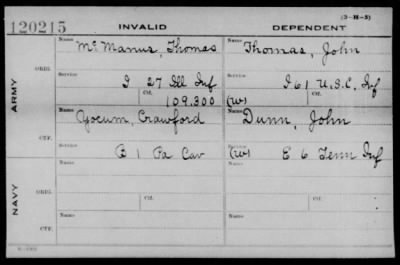 (3-H-3)
120215 INVALID DEPENDENT
Name McManus, Thomas Name Thomas, John
ARMY ORIG. Service I 27 Ill Inf Service I 61 U.S.C. Inf
Ctf. 109.300 (W) Ctf.
Name Yocum, Crawford Name Dunn, John
CTF. Service B 1 Pa Cav Service (W) E 6 Tenn Inf
NAVY ORIG. Name Name
CTF. Name Name